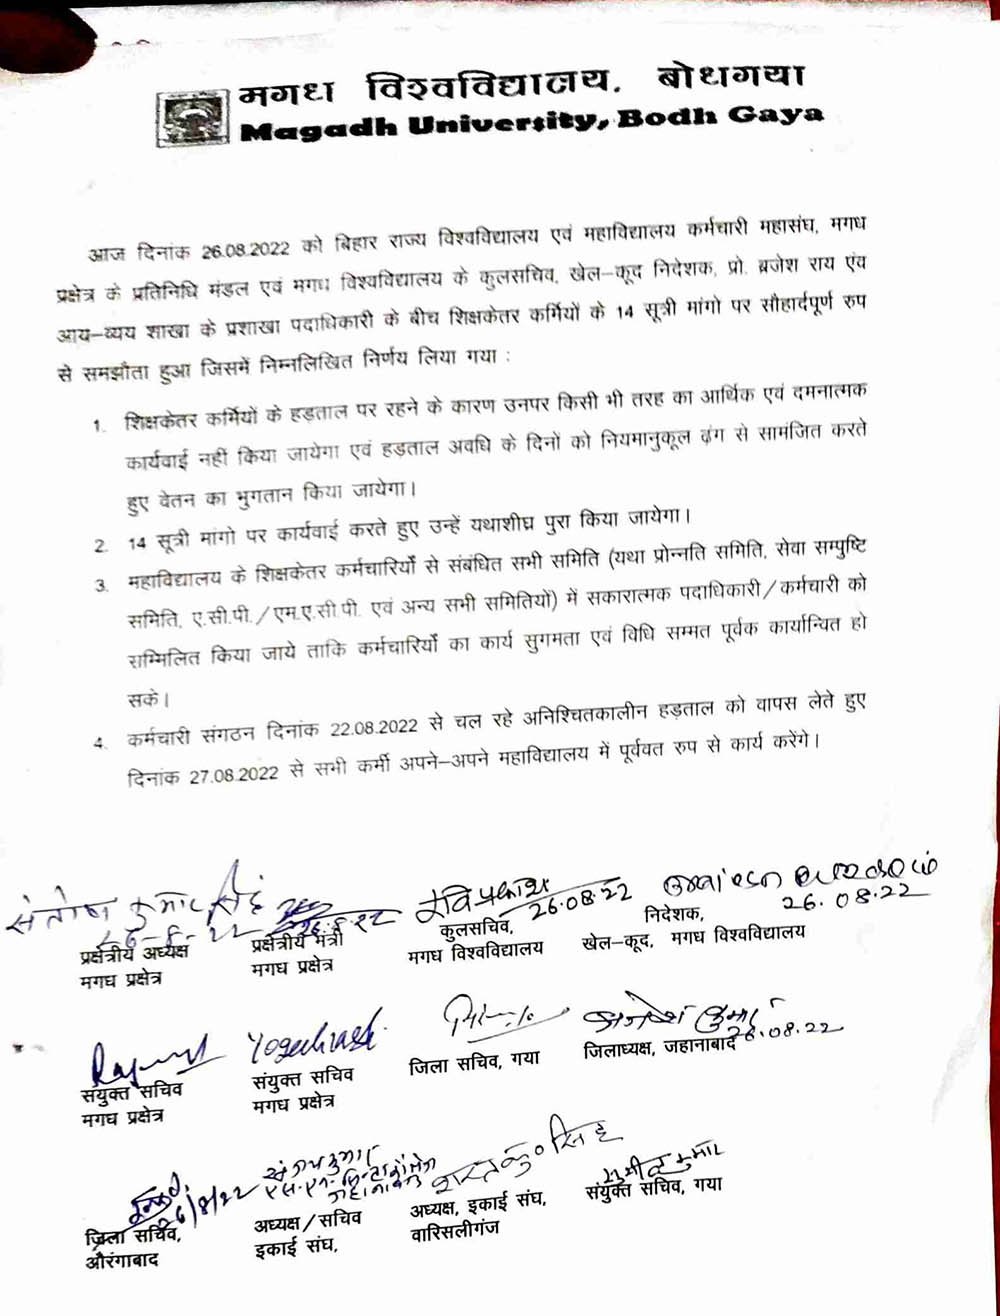 मगध विश्वविद्यालय, बोधगया
Magadh University, Bodh Gaya
आज दिनांक 26.08.2022 को बिहार राज्य विश्वविद्यालय एवं महाविद्यालय कर्मचारी महासंघ, मगध
प्रक्षेत्र के प्रतिनिधि मंडल एवं मगध विश्वविद्यालय के कुलसचिव, खेल–कूद निदेशक, प्रो. ब्रजेश राय एंव
आय–व्यय शाखा के प्रशाखा पदाधिकारी के बीच शिक्षकेतर कर्मियों के 14 सूत्री मांगो पर सौहार्दपूर्ण रुप
से समझौता हुआ जिसमें निम्नलिखित निर्णय लिया गया :
1. शिक्षकेतर कर्मियों के हड़ताल पर रहने के कारण उनपर किसी भी तरह का आर्थिक एवं दमनात्मक
कार्यवाई नहीं किया जायेगा एवं हड़ताल अवधि के दिनों को नियमानुकूल ढ़ंग से सामंजित करते
हुए वेतन का भुगतान किया जायेगा।
2. 14 सूत्री मांगो पर कार्यवाई करते हुए उन्हें यथाशीघ्र पुरा किया जायेगा।
3. महाविद्यालय के शिक्षकेतर कर्मचारियों से संबंधित सभी समिति (यथा प्रोन्नति समिति, सेवा सम्पुष्टि
समिति, ए.सी.पी./एम.ए.सी.पी. एवं अन्य सभी समितियों) में सकारात्मक पदाधिकारी/कर्मचारी को
सम्मिलित किया जाये ताकि कर्मचारियों का कार्य सुगमता एवं विधि सम्मत पूर्वक कार्यान्वित हो
सके।
4. कर्मचारी संगठन दिनांक 22.08.2022 से चल रहे अनिश्चितकालीन हड़ताल को वापस लेते हुए
दिनांक 27.08.2022 से सभी कर्मी अपने–अपने महाविद्यालय में पूर्ववत रुप से कार्य करेंगे।
संतोष कुमार सिंह रवि प्रकाश
26-8-22 26.8.22 26.08.22 26.08.22
प्रक्षेत्रीय अध्यक्ष प्रक्षेत्रीय मंत्री कुलसचिव, निदेशक,
मगध प्रक्षेत्र मगध प्रक्षेत्र मगध विश्वविद्यालय खेल–कूद, मगध विश्वविद्यालय
कुमार
26.08.22
संयुक्त सचिव संयुक्त सचिव जिला सचिव, गया जिलाध्यक्ष, जहानाबाद
मगध प्रक्षेत्र मगध प्रक्षेत्र
कुमार सिंह कुमार
26/8/22
जिला सचिव, अध्यक्ष/सचिव अध्यक्ष, इकाई संघ, संयुक्त सचिव, गया
औरंगाबाद इकाई संघ, वारिसलीगंज